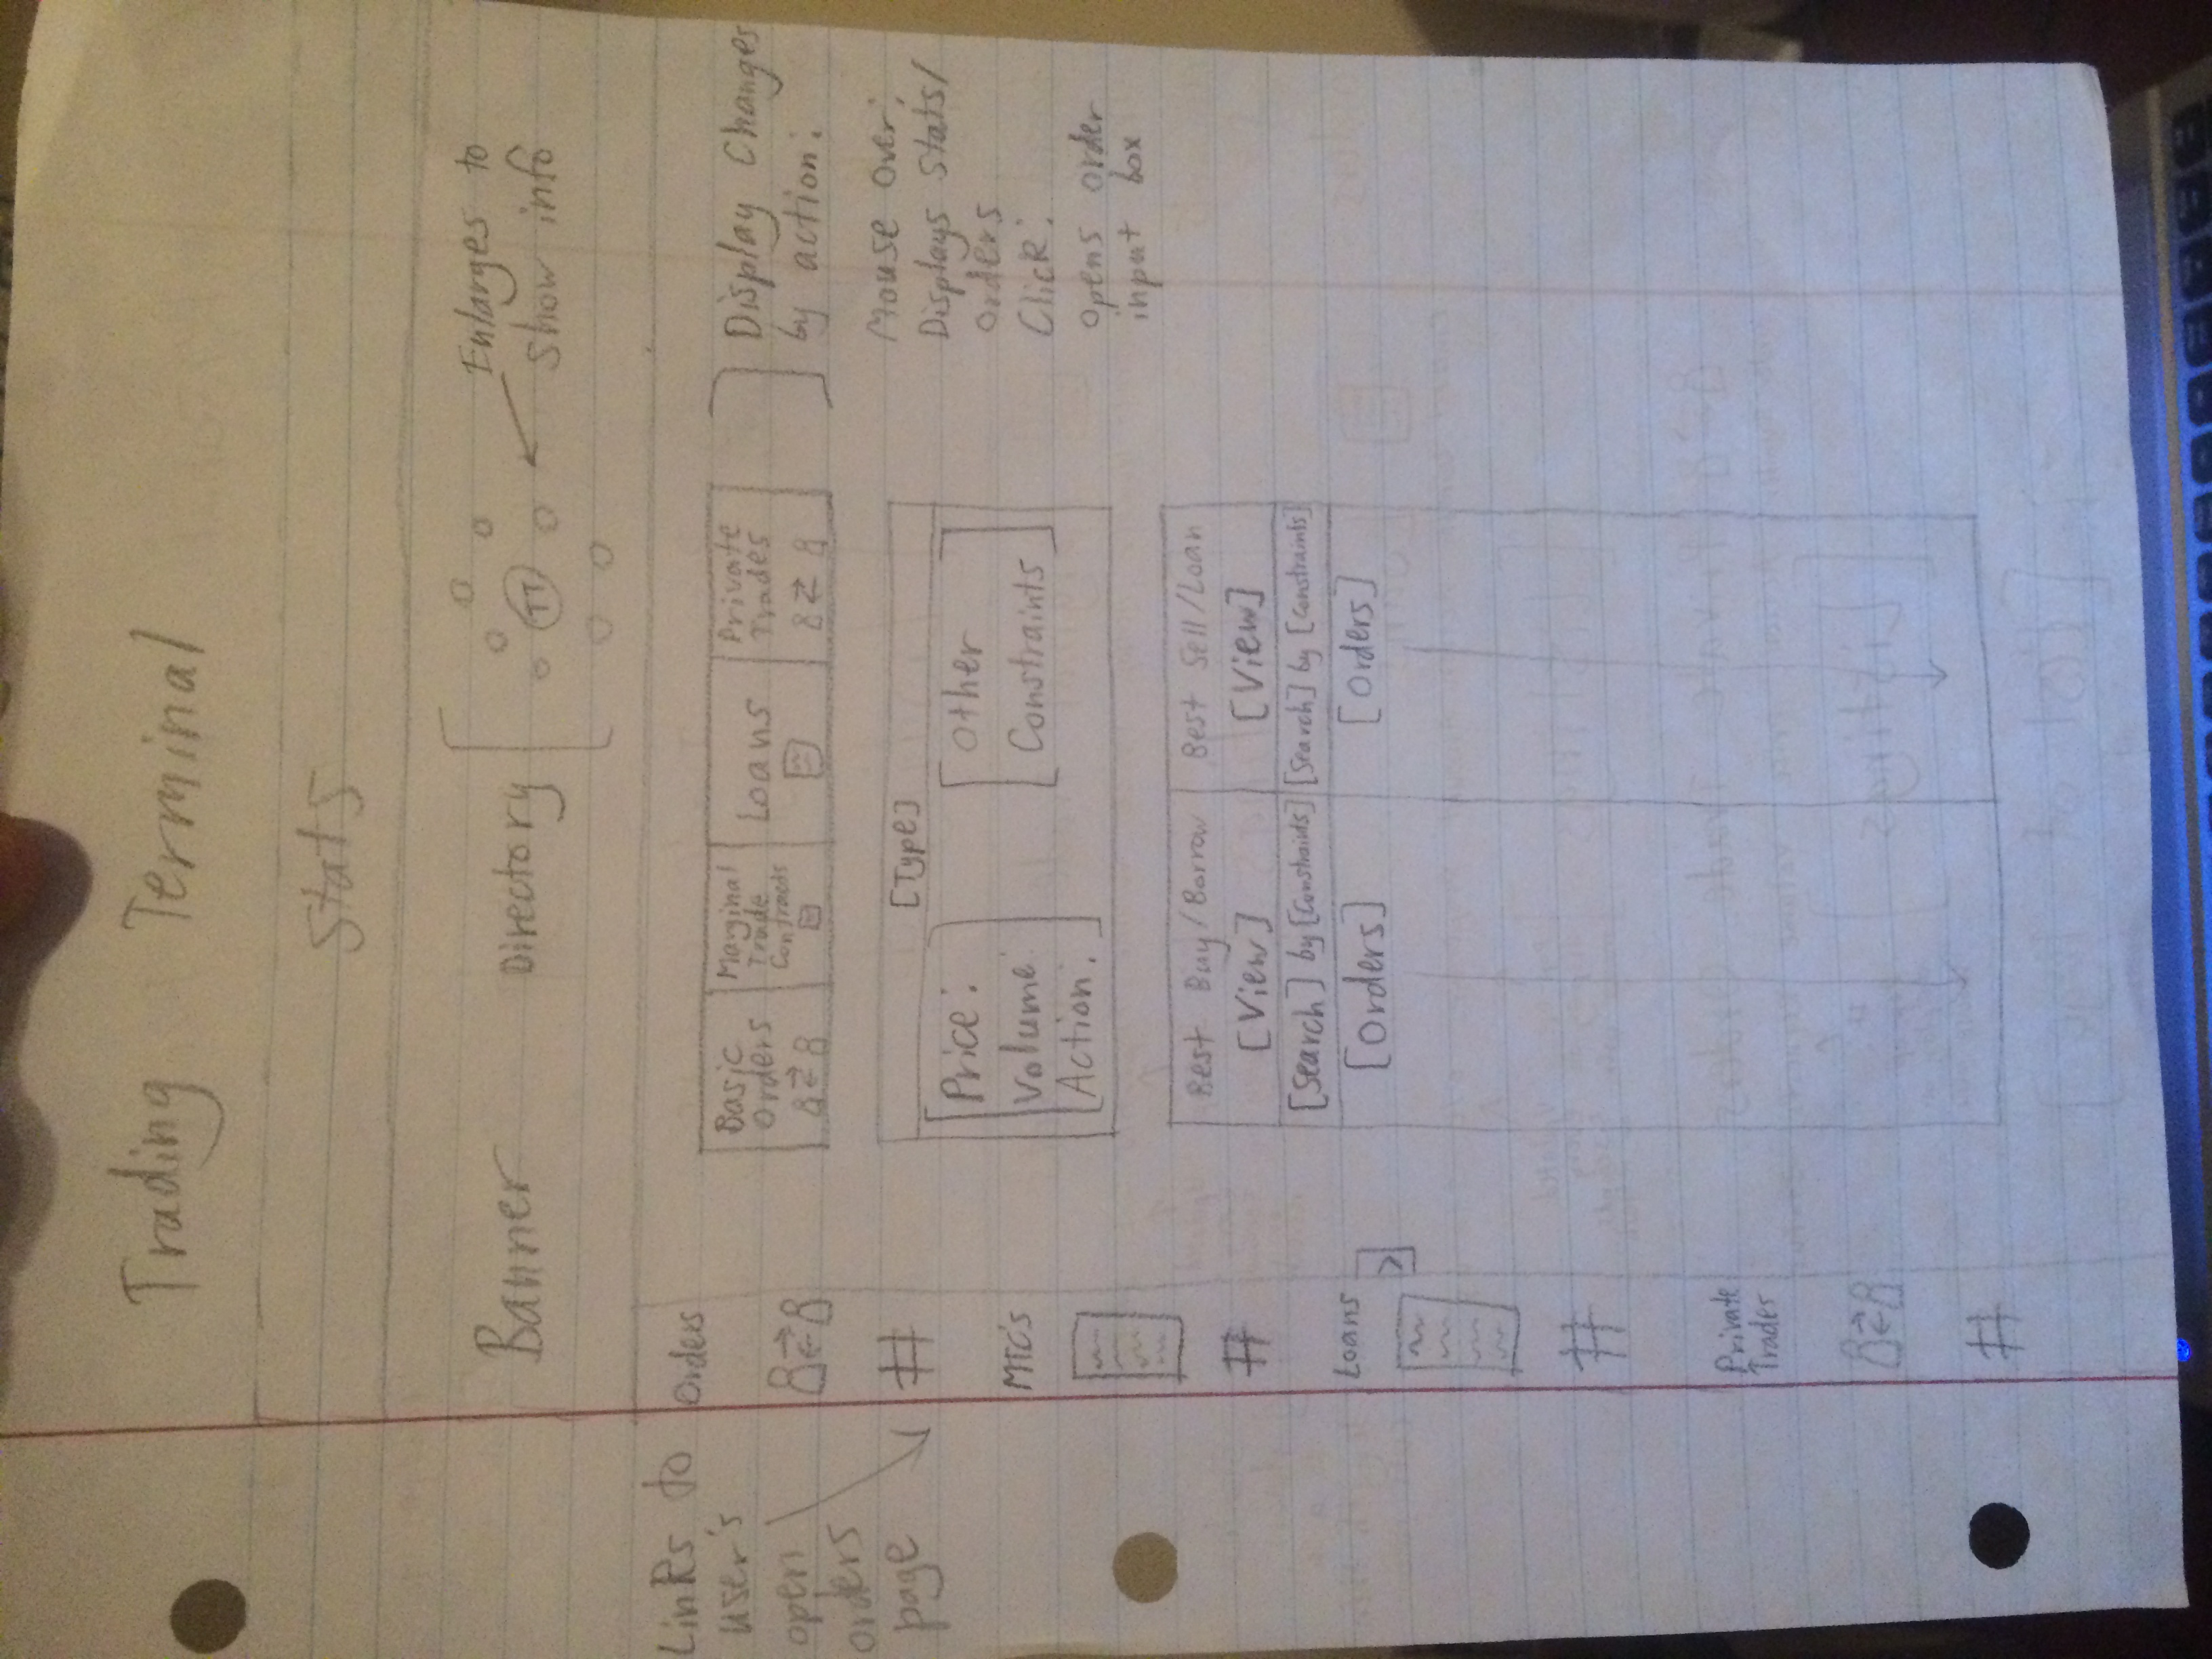 Trading Terminal
Stats
Banner
Directory
TT
Enlarges to
show info
Links to
user's
open
orders
page
Orders
#
MTC's
#
Loans
>
#
Private
Trades
#
Basic
Orders
Marginal
Trade
Contracts
Loans
Private
Trades
Display Changes
by action:
Mouse over:
Displays Stats/
orders
Click:
opens order
input box
[Type]
Price:
Volume:
Action:
Other
Constraints
Best Buy/Borrow
[View]
[Search] by [Constraints]
[Orders]
Best Sell/Loan
[View]
[Search] by [Constraints]
[Orders]